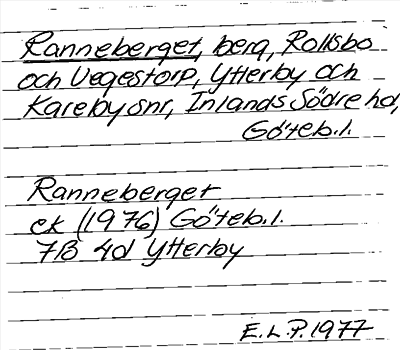 Ranneberget, berg, Rollsbo
och Vegestorp, Ytterby och
Kareby snr, Inlands Södre hd,
Göteb.l.
Ranneberget
ek (1976) Göteb.l.
7B 4d Ytterby
E.L.P. 1977